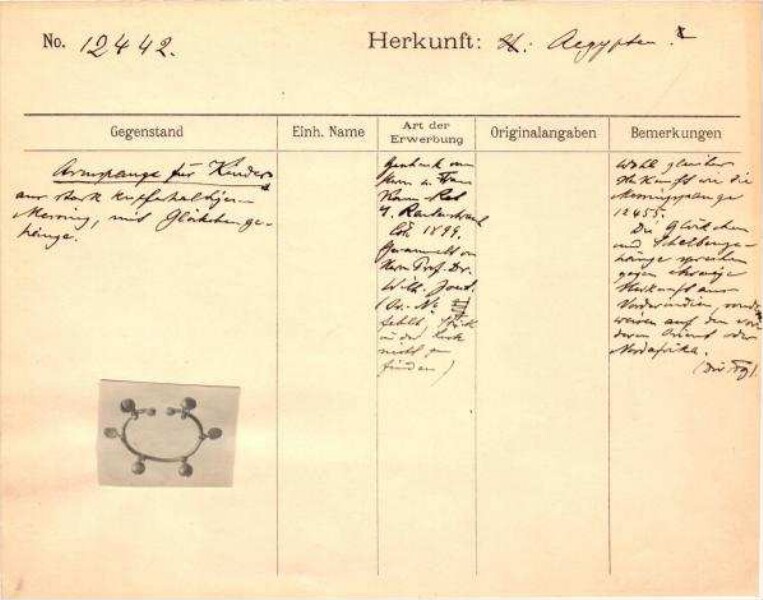 No. 12442.
Herkunft: Aegypten?
Gegenstand
Einh. Name
Art der Erwerbung
Originalangaben
Bemerkungen
Armspange für Kinder
aus stark kupferhaltigem
Messing, mit Glöckchenge-
hänge.
Geschenk von
Herrn u. Frau
Rautenstrauch
1899.
Gesammelt von
Herrn Prof. Dr.
Wilh. Joest.
(Or. No.
fehlt, Stück
in der Liste
nicht zu
finden)
Wohl gleicher
Herkunft wie die
Messingspange
12455.
Die Glöckchen
und Schellenge-
hänge sprechen
gegen etwaige
Herkunft aus
Vorderindien, sondern
weisen auf den vor-
deren Orient oder
Nordafrika.